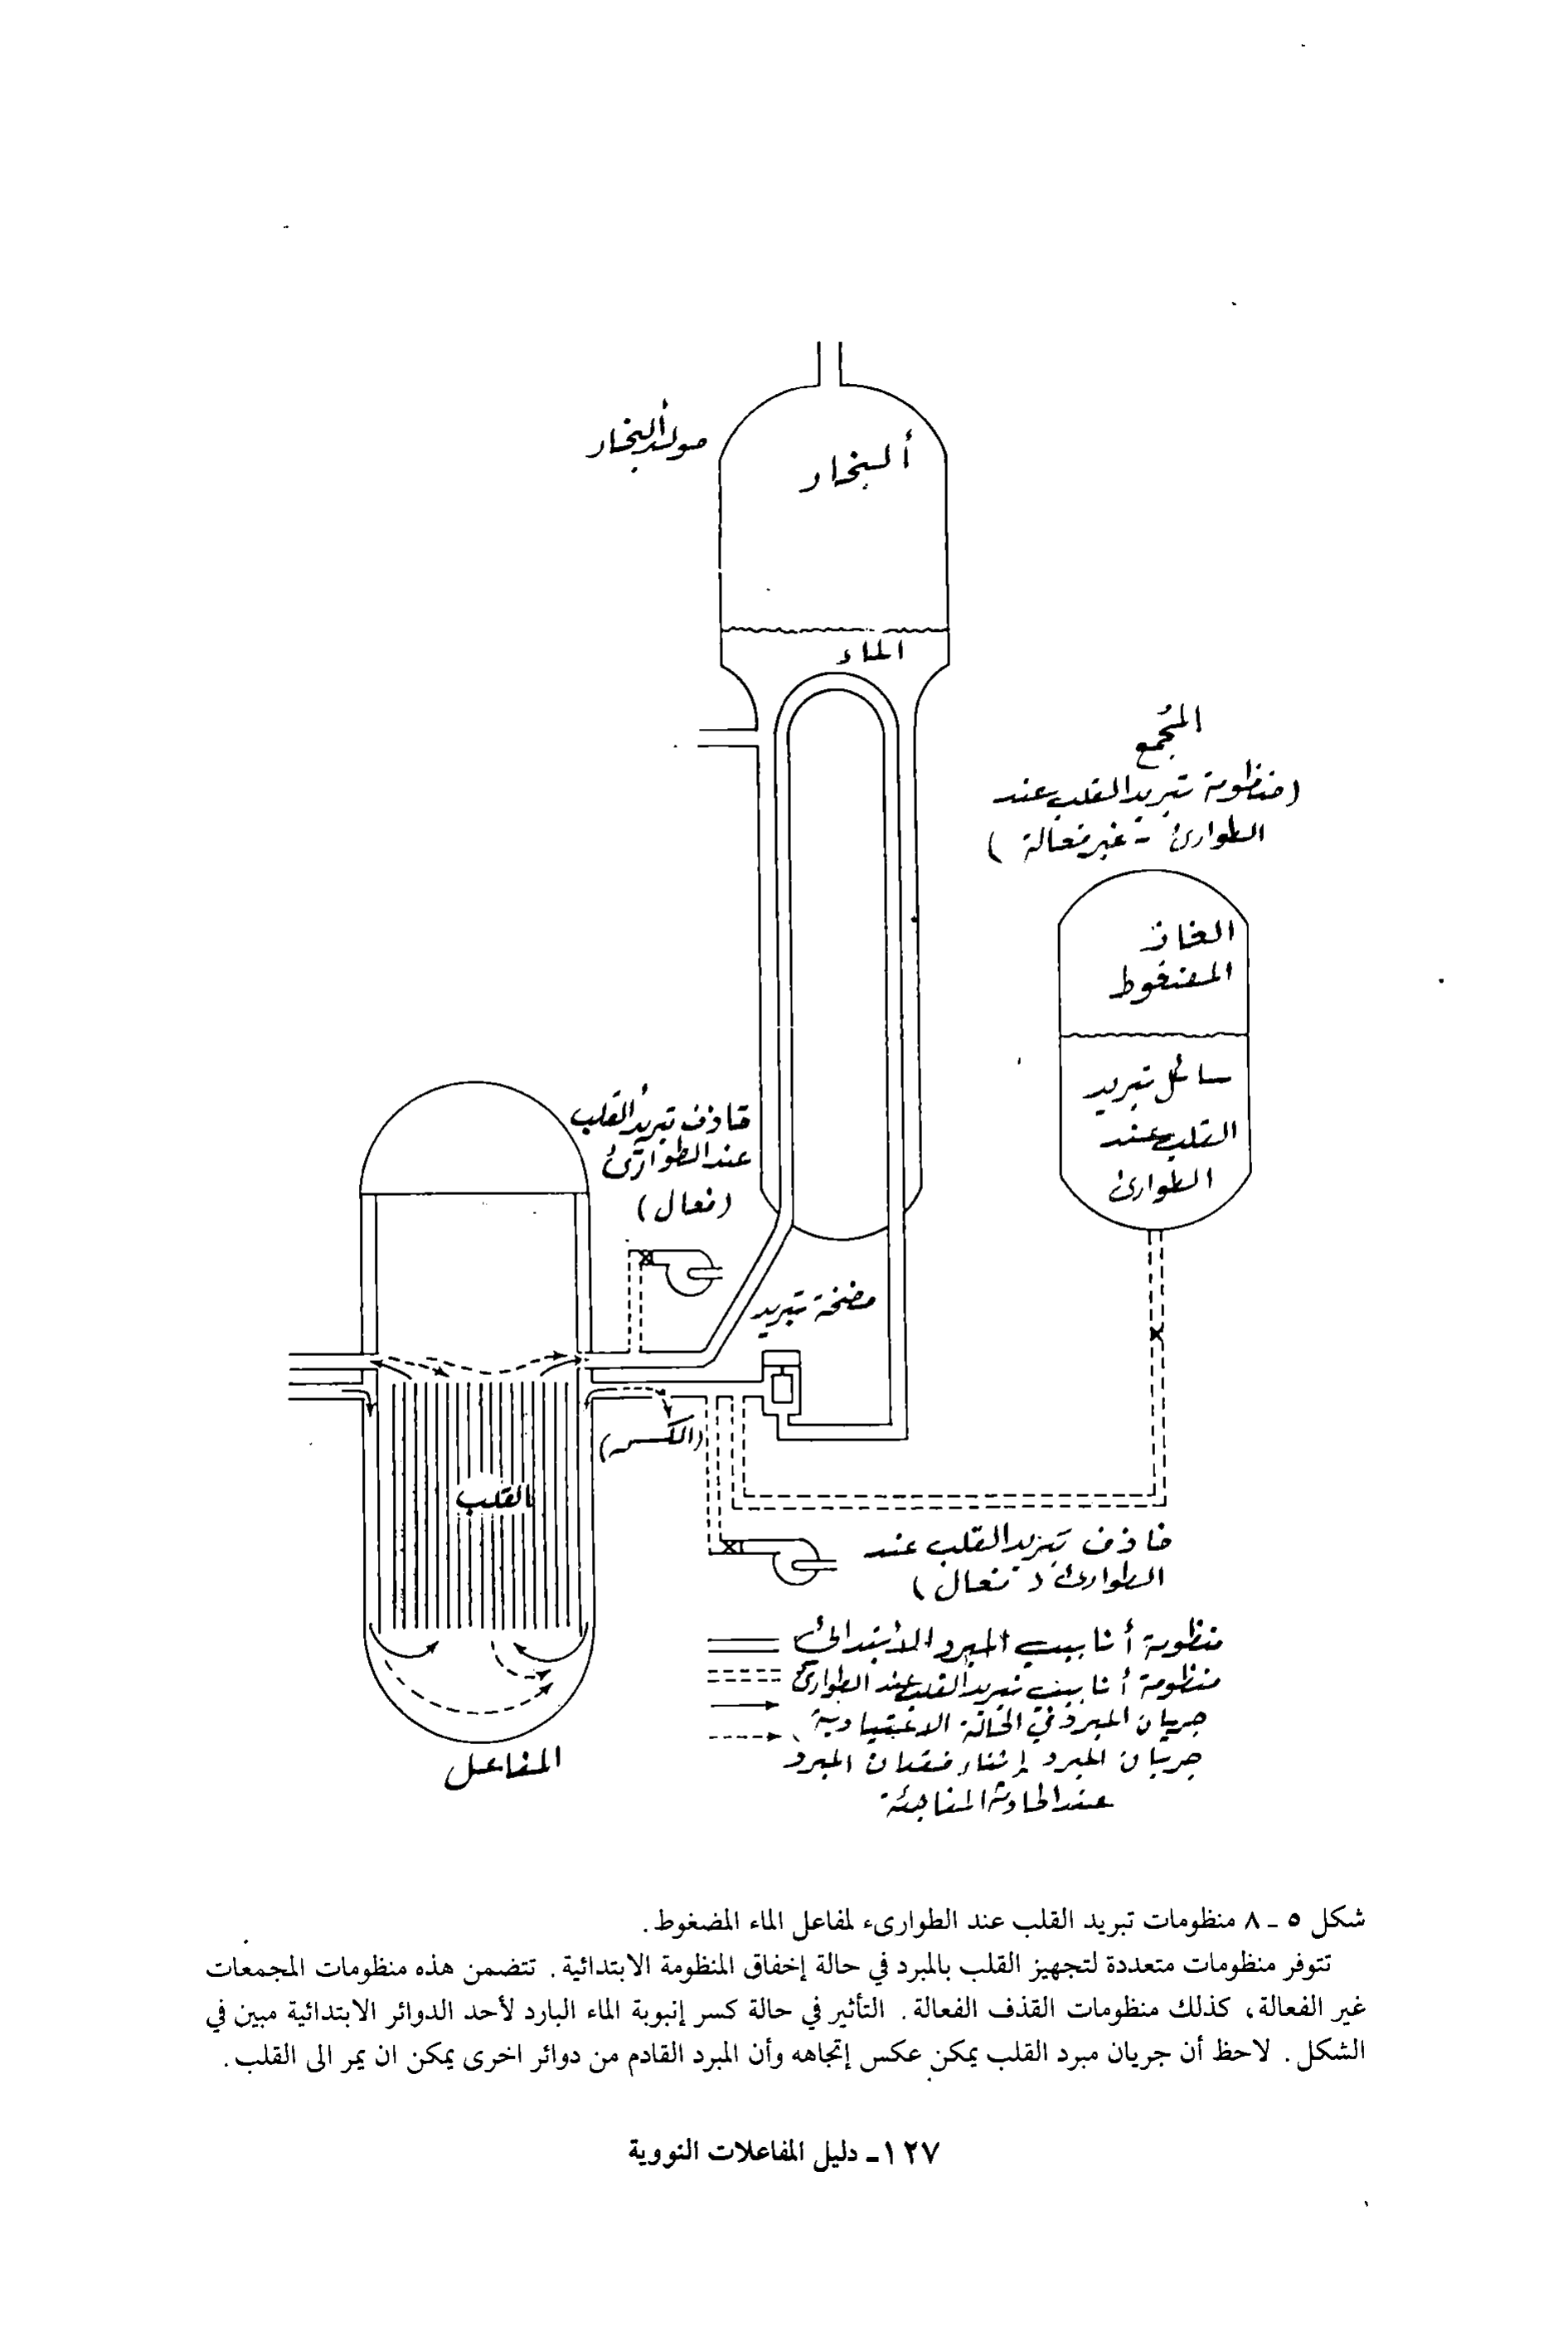 مولد ألبخار
ألبخار
الماء
المُجمع
(منظومة تبريد القلب عند
الطوارئ - غير فعالة)
الغاز
المضغوط
سائل تبريد
القلب عند
الطوارئ
قاذف تبريد القلب
عند الطوارئ
(فعال)
مضخة تبريد
(الكسر)
القلب
قاذف تبريد القلب عند
الطوارئ (فعال)
منظومة أنابيب المبرد الأبتدائي
منظومة أنابيب تبريد القلب عند الطوارئ
جريان المبرد في الحالة الاعتيادية
جريان المبرد إثناء فقدان المبرد
عند الحادثة المفاجئة
المفاعل
شكل ٥ ـ ٨ منظومات تبريد القلب عند الطوارىء لمفاعل الماء المضغوط.
تتوفر منظومات متعددة لتجهيز القلب بالمبرد في حالة إخفاق المنظومة الابتدائية. تتضمن هذه منظومات المجمعات
غير الفعالة، كذلك منظومات القذف الفعالة. التأثير في حالة كسر إنبوبة الماء البارد لأحد الدوائر الابتدائية مبين في
الشكل. لاحظ أن جريان مبرد القلب يمكن عكس إتجاهه وأن المبرد القادم من دوائر اخرى يمكن ان يمر الى القلب.
١٢٧ـ دليل المفاعلات النووية